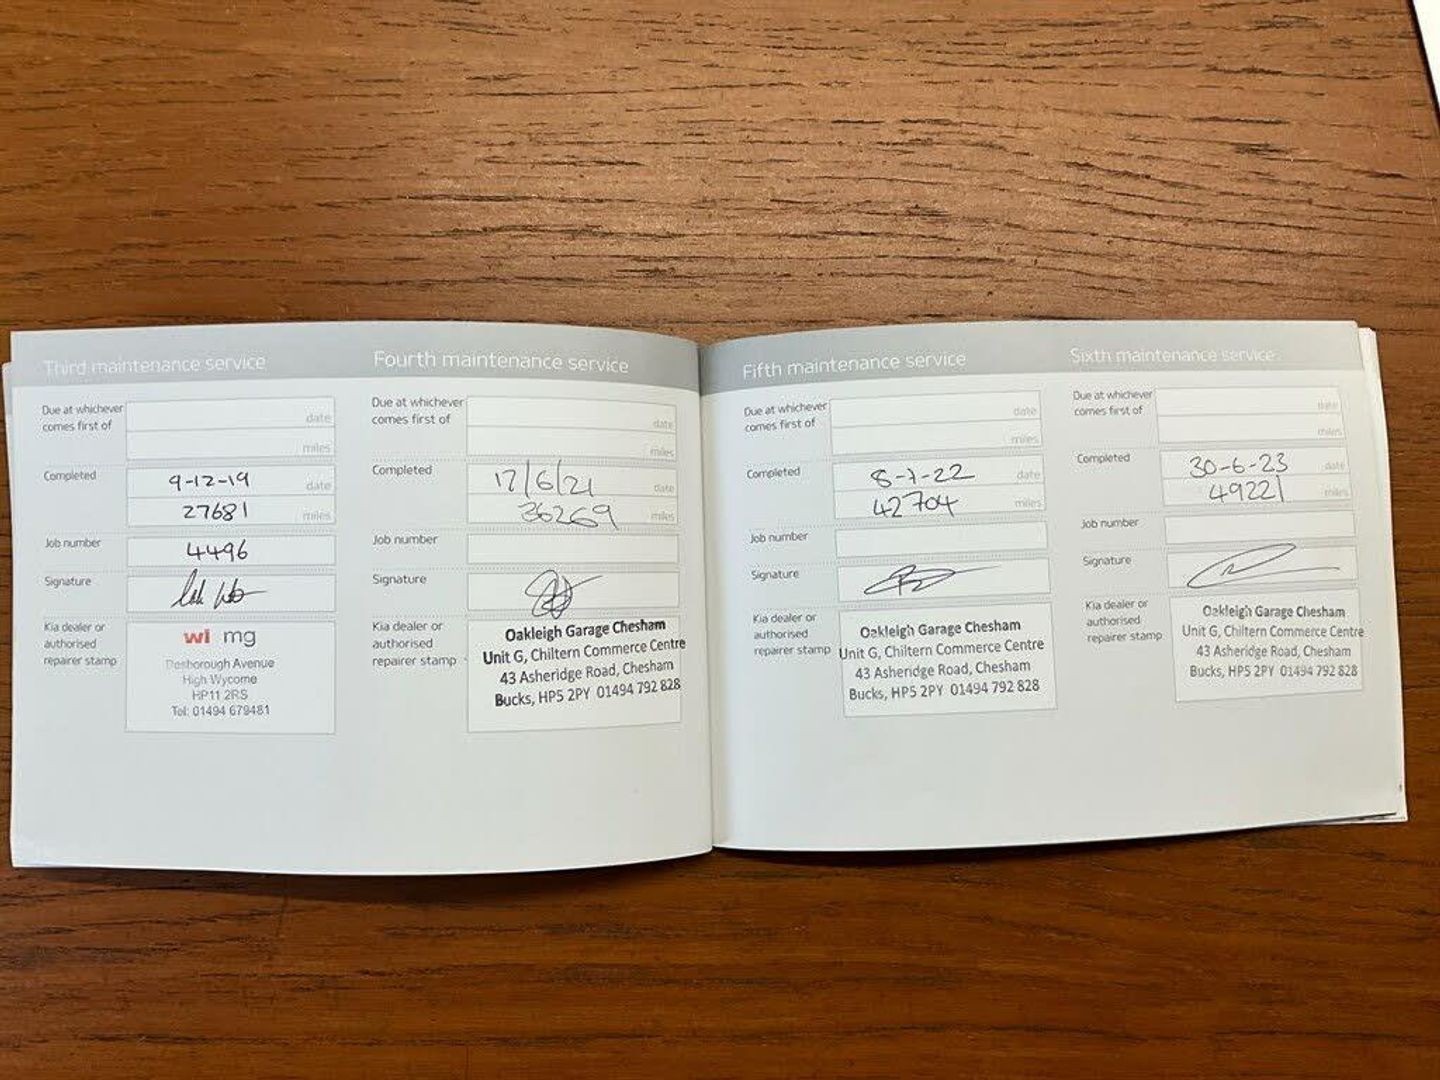 Third maintenance service
Due at whichever
comes first of
date
miles
Completed
9-12-19 date
27681 miles
Job number
4496
Signature
Kia dealer or
authorised
repairer stamp
wi mg
Desborough Avenue
High Wycome
HP11 2RS
Tel: 01494 679481
Fourth maintenance service
Due at whichever
comes first of
date
miles
Completed
17/6/21 date
36269 miles
Job number
Signature
Kia dealer or
authorised
repairer stamp
Oakleigh Garage Chesham
Unit G, Chiltern Commerce Centre
43 Asheridge Road, Chesham
Bucks, HP5 2PY 01494 792 828
Fifth maintenance service
Due at whichever
comes first of
date
miles
Completed
8-7-22 date
42704 miles
Job number
Signature
Kia dealer or
authorised
repairer stamp
Oakleigh Garage Chesham
Unit G, Chiltern Commerce Centre
43 Asheridge Road, Chesham
Bucks, HP5 2PY 01494 792 828
Sixth maintenance service
Due at whichever
comes first of
date
miles
Completed
30-6-23 date
49221 miles
Job number
Signature
Kia dealer or
authorised
repairer stamp
Oakleigh Garage Chesham
Unit G, Chiltern Commerce Centre
43 Asheridge Road, Chesham
Bucks, HP5 2PY 01494 792 828